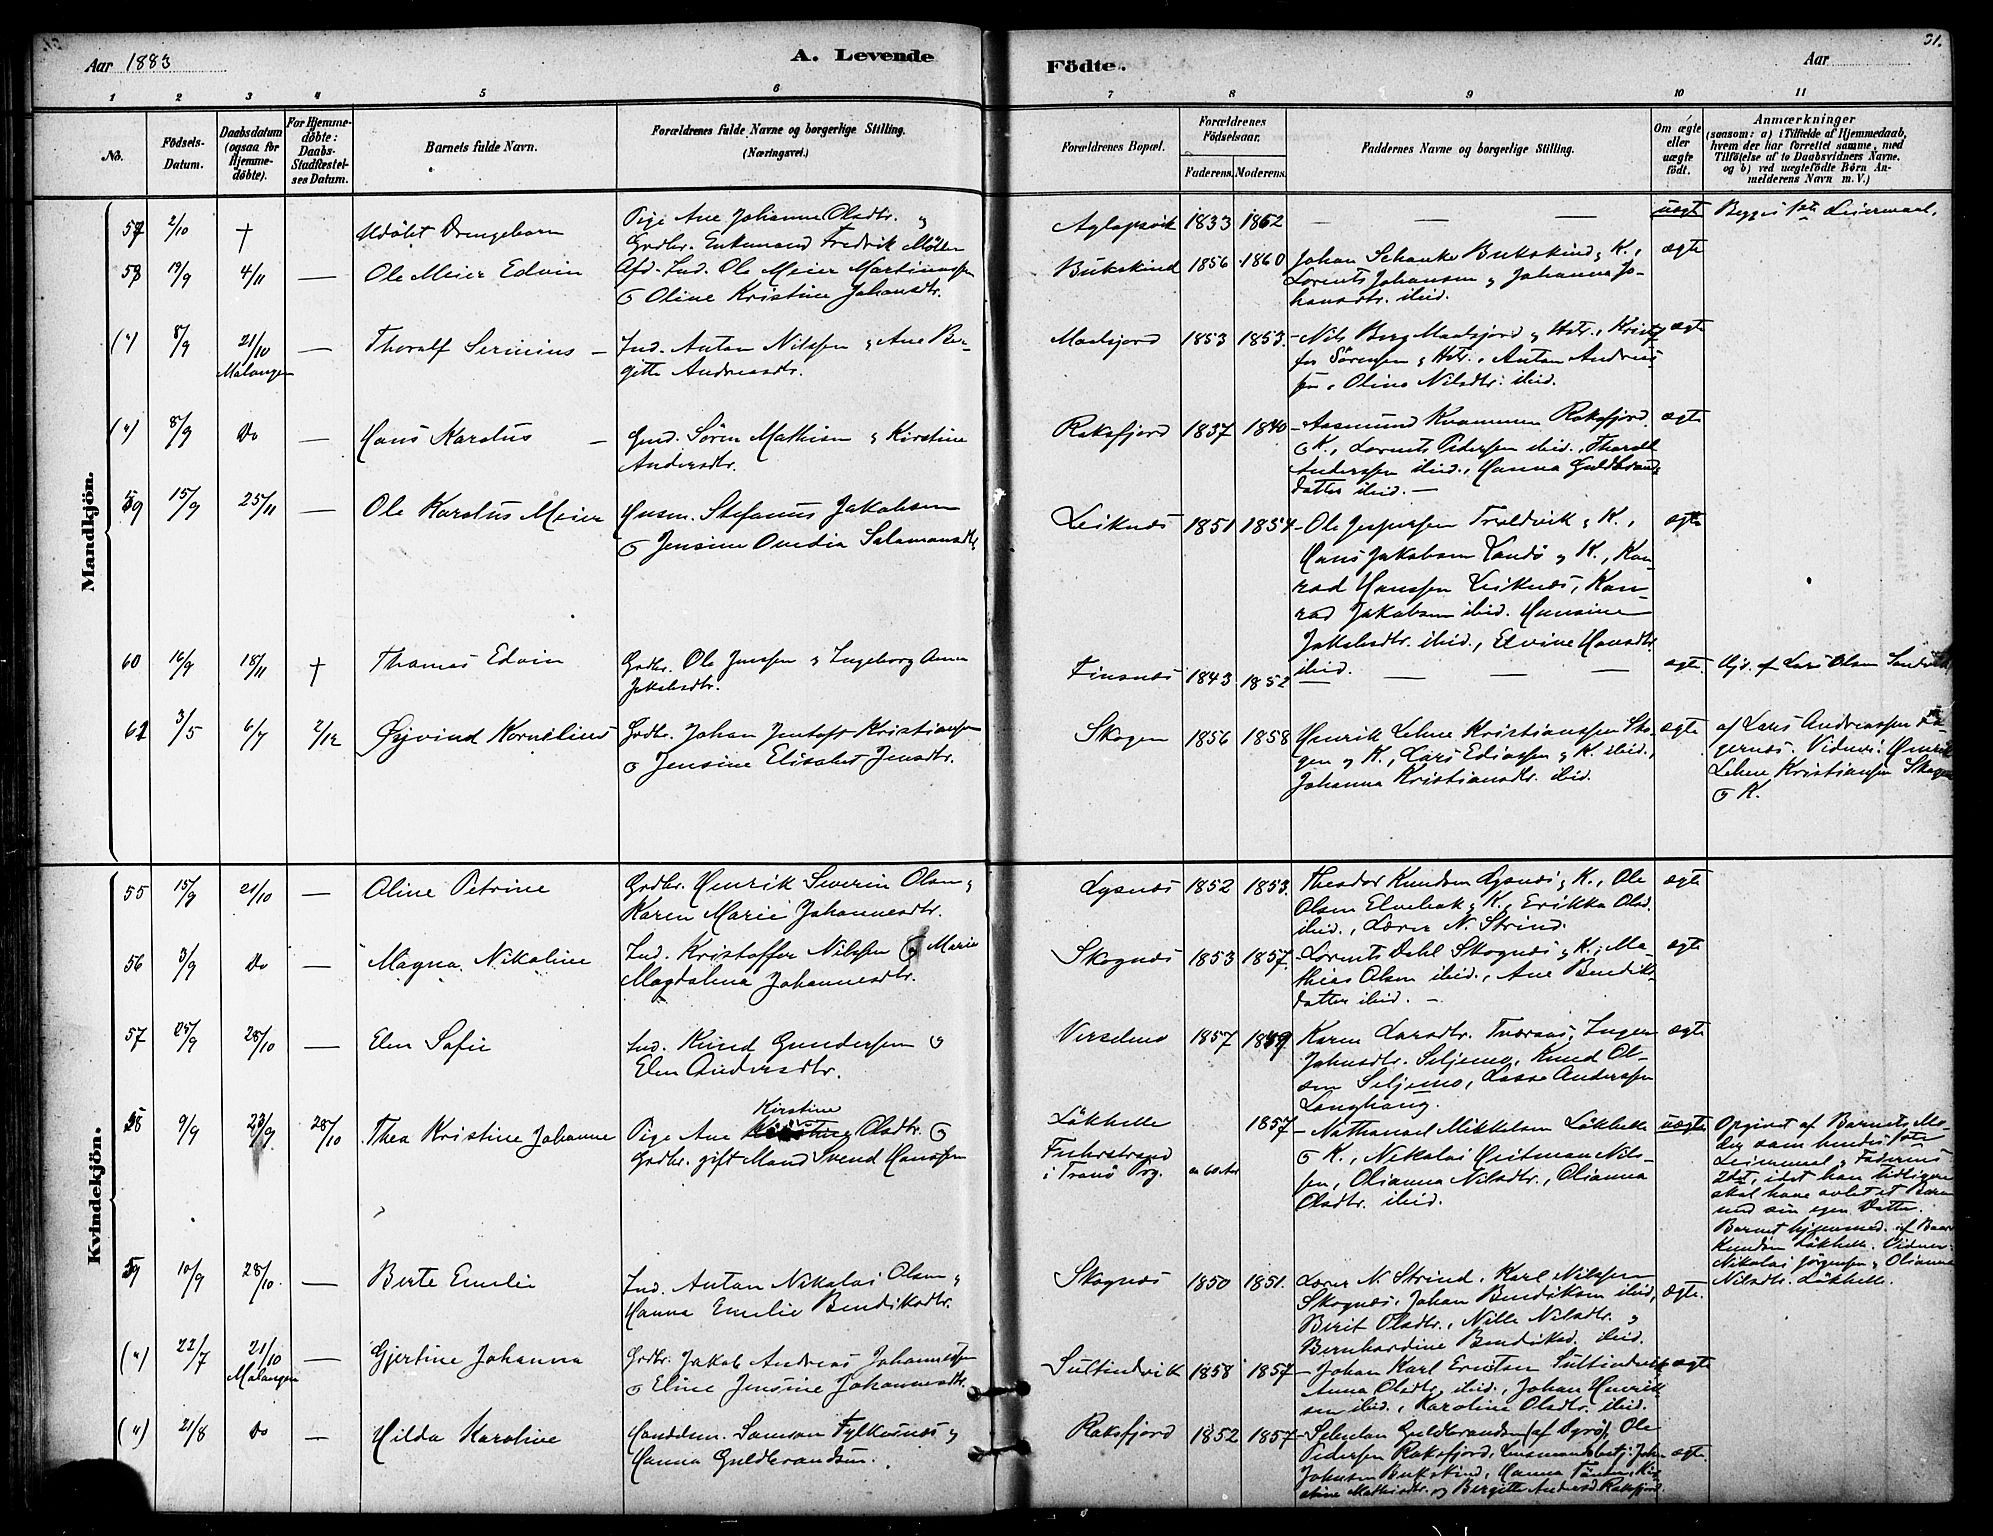 31.
Aar 1883
A. Levende
Födte.
Aar
1 2 3 4 5 6 7 8 9 10 11
No.
Födsels-
Datum.
Daabsdatum
(ogsaa for
Hjemme-
döbte).
For Hjemme-
döbte:
Daabs-
Stadfæstel-
ses Datum.
Barnets fulde Navn.
Forældrenes fulde Navne og borgerlige Stilling.
(Næringsvei.)
Forældrenes Bopæl.
Forældrenes
Födselsaar.
Faderens. Moderens.
Faddernes Navne og borgerlige Stilling.
Om ægte
eller
uægte
födt.
Anmærkninger
(saasom: a) i Tilfælde af Hjemmedaab,
hvem der har forrettet samme, med
Tilföielse af to Daabsvidners Navne.
og b) ved uægtefödte Börn An-
melderens Navn m. V.)
Mandkjön.
57 2/10 † Udöbt Drengebarn
Pige Ane Johanne Olsdtr. &
Grdbr. Enkemand Fredrik Möller
Aglapsvik 1833 1862 — — — uægte Begges 1ste Leiermaal.
58 19/9 4/11 — Ole Meier Edvin
Afd. Ind. Ole Meier Martinussen
& Oline Kristine Johansdtr.
Bukskind 1856 1860
Johan Schanke Bukskind & K.,
Lorents Johansen & Johanna Jo-
hansdtr. ibid.
ægte
(") 8/9 21/10 Malangen — Thoralf Serinius —
Ind. Anton Nilssen & Ane Ber-
gitte Andreasdtr.
Maalsjord 1853 1853
Nils Berg Maalsjord & Hstr., Krist-
fer Sörensen & Hstr., Anton Andreas-
sen, Oline Nilsdtr. ibid.
ægte
(") 8/9 Do — Hans Karolus —
Grd. Sören Mathisen & Kirstine
Andersdtr.
Roksfjord 1837 1840
Aasmund Kvammen Roksfjord
& K., Lornts Pedersen ibid., Thorall
Anderssen ibid., Hanna Guldbrands-
datter ibid. —
ægte
59 15/9 25/11 — Ole Karolus Meier
Husm. Stefanus Jakobsen
& Jensine Ovedia Salamonsdtr.
Leiknes 1851 1854
Ole Jespersen Troldvik & K.,
Hans Jakobsen Vandö & K., Kon-
rad Hanssen Leiknes, Kon-
rad Jakobsen ibid. Hansine
Jakobsdtr. ibid., Elvine Hansdtr.
ibid.
ægte
60 16/9 18/11 † Thomas Edvin
Grdbr. Ole Jenssen & Ingeborg Anna
Jakobsdtr.
Finsnes 1843 1852 — — — — ægte Hjd. af Lars Olsen Sandvik
61 3/5 6/7 2/12 Øivind Kornelius
Grdbr. Johan Jentoft Kristianssen
& Jensine Elisabet Jensdtr.
Skogen 1856 1858
Henrik Lehne Kristianssen Sko-
gen & K., Lars Eliassen & K. ibid.,
Johanna Kristiansdtr. ibid.
ægte
af Lars Andreassen
gernes. Vidner: Henrik
Lehne Kristiansen Skogen
& K.
Kvindekjön.
55 15/9 21/10 — Oline Petrine
Grdbr. Henrik Severin Olsen &
Karen Marie Johannesdtr.
Lysnes 1852 1853
Theodor Knudsen Lysnes & K., Ole
Olsen Elvebak & K., Erikka Olsd.
ibid., Lærer N. Strind.
ægte
56 3/9 Do — Magna Nikoline
Ind. Kristoffer Nilssen & Marie
Magdalena Johannesdtr.
Skognes 1853 1857
Lorents Dahl Skognes & K., Ma-
thias Olsen ibid., Ane Bendiks-
datter ibid. —
ægte
57 25/9 28/10 — Elen Sofie
Ind. Knud Gundersen &
Elen Andersdtr.
Verselmo 1857 1849
Karen Larsdtr. Tværaas, Inger
Johnsdtr. Seljemo, Knud Ol-
sen Seljemo, Lasse Anderssen
Langhaug.
ægte
58 9/9 23/9 28/10 Thea Kristine Johanne
Pige Ane Kirstine Olsdtr. &
Grdbr. gift Mand Svend Hanssen
Lökhelle 1857
Fuhrstrand
i Tranö Prg. ca 60 Aar
Nathanael Mikkelsen Lökhelle
& K., Nikolai Heitman Nils-
sen, Olianna Nilsdtr., Olianna
Olsdtr. ibid.
uægte
Opgivet af Barnets Mo-
der som hendes 1ste
Leiermaal & Faderens
2det, idet han tidligere
skal have avlet et Barn
med sin egen Datter.
Barnet hjemmed. af
Knudsen Lökhelle. Vidner:
Nikolai Jörgensen & Olianna
Nilsdtr. Lökhelle.
59 10/9 28/10 — Berte Emelie
Ind. Anton Nikolai Olsen &
Hanna Emelie Bendiksdtr.
Skognes 1850 1851
Lærer N. Strind, Karl Nilssen
Skognes, Johan Bendiksen ibid.,
Berit Olsdtr., Nille Nilsdtr. &
Bernhardine Bendiksd. ibid.
ægte.
(") 22/7 21/10 Malangen — Gjertine Johanna
Grdbr. Jakob Andreas Johannessen
& Eline Jensine Johannesdtr.
Sultindvik 1858 1857
Johan Karl Erntsen Sultindvik,
Anna Olsdtr. ibid., Johan Henrik-
sen ibid., Karoline Olsdtr. ibid.
ægte
(") 21/8 Do — Hilda Karoline
Handelsm. Samson Fylkesnes &
Hanna Guldbrandsen.
Roksfjord 1852 1857
Guldbrandsen (af Dyrö), Ole
Pedersen Roksfjord, Lensmandsbetj. Johan
Johnsen Bukskind, Hanna
Mathisdtr. og Bergitte Andersd. Roksfjord.
ægte